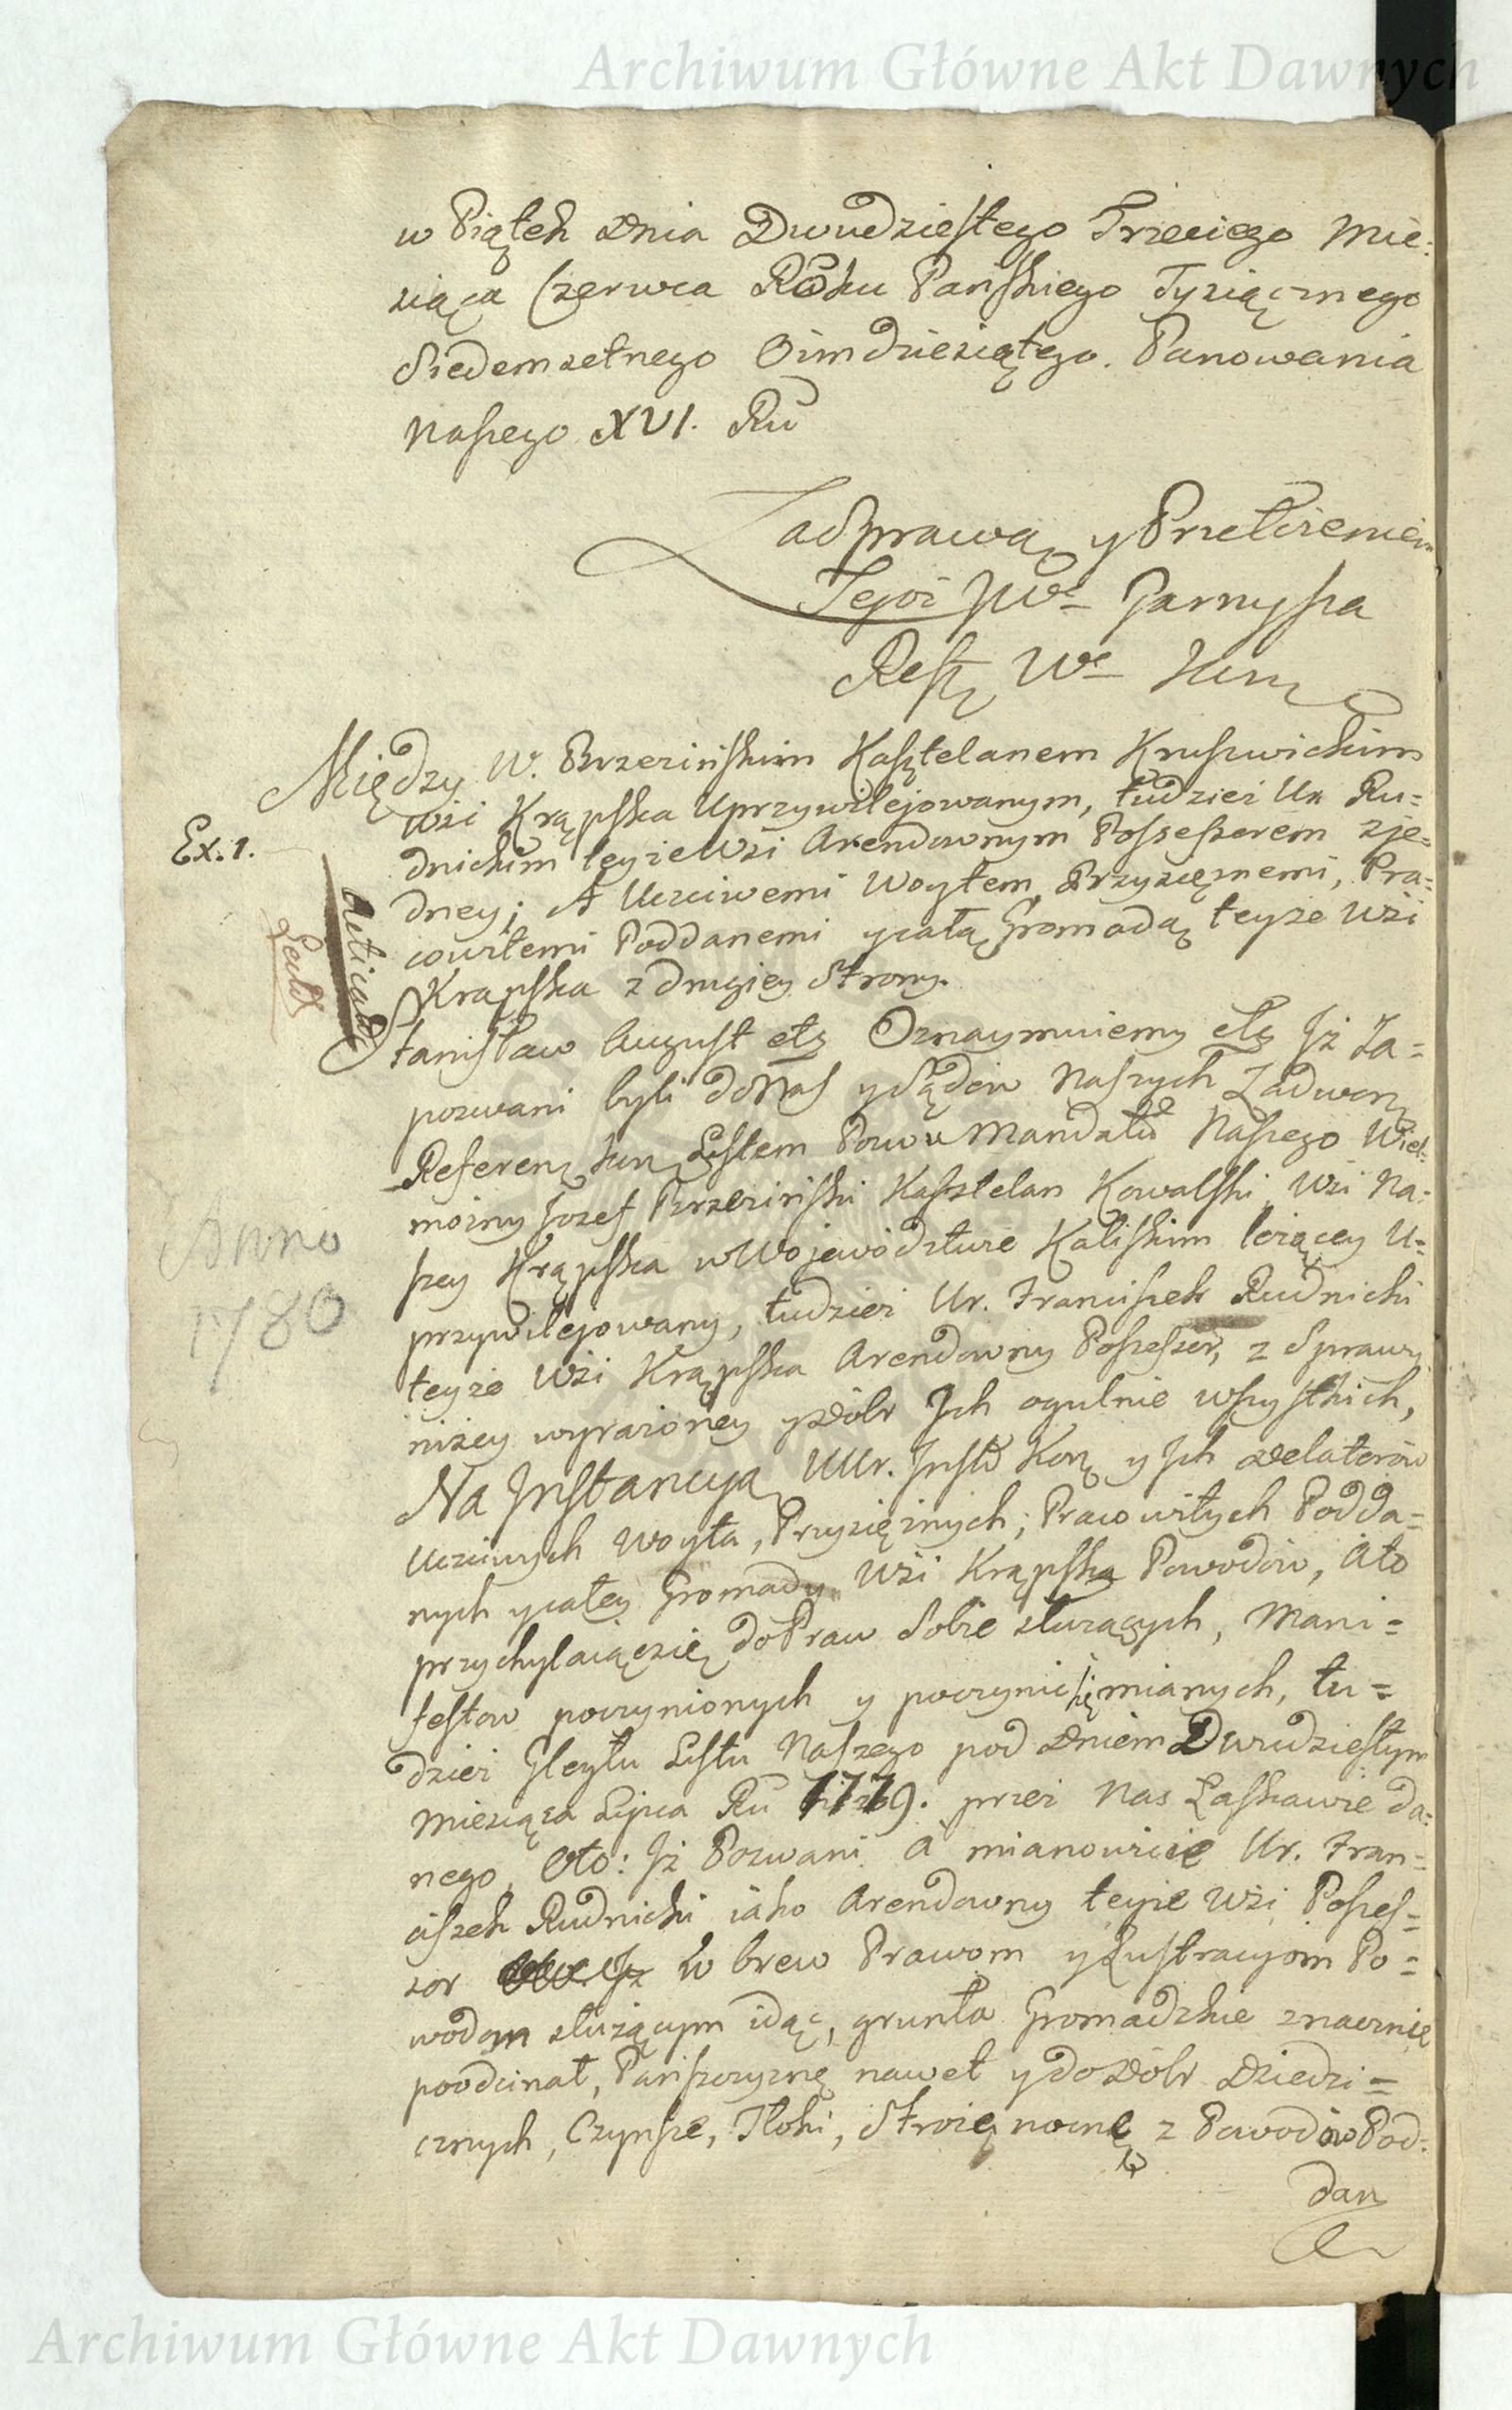 Archiwum Główne Akt Dawnych
w Piątek dnia Dwudziestego Trzeciego Mie:
siąca Czerwca Roku Pańskiego Tysiącznego
Siedemsetnego Osmdziesiątego. Panowania
Naszego XVI. Ru
Za Sprawą y Przełożeniem
Tegoż JWo Garnysza
Między W. Brzezińskim Kasztelanem Kruszwickim
Wsi Krąpska Uprzywilejowanym, tudzież Ur. Ru=
Ex. 1.
dnickim teyże Wsi Arendownym Possessorem z je=
dney; A Uczciwemi Woytem, Przysięznemi, Pra=
cowitemi Poddanemi y całą Gromadą teyże Wsi
Krąpska z drugiey Strony.
Stanisław August etc Oznaymuiemy etc Iż Za=
pozwani byli do Nas y Sądów Naszych Zadwor
Referen Kur Listem Pozwu Mandatu Naszego Wiel=
możny Jozef Brzeziński Kasztelan Kowalski Wsi Na=
szey Krąpska w Wojewodztwie Kaliskim leżącey U=
Anno
1780
przywilejowany, tudzież Ur. Franciszek Rudnicki
teyże Wsi Krąpska Arendowny Possessor, z Sprawy
niżey wyrażoney y Dóbr Ich ogulnie wszystkich,
Na Instancyą UUr. Inst Kor y Ich Delatorów
Uczciwych Woyta, Przysięznych; Pracowitych Podda=
nych y całey Gromady Wsi Krąpska Powodów, Ato
przychylaiąc się do Praw Sobie służących, Mani=
festow poczynionych y poczynić się mianych, tu=
dzież Gleytu Listu Naszego pod Dniem Dwudziestym
Miesiąca Lipca Ru 1779. przez Nas Łaskawie da=
nego. Oto: Iż Pozwani a mianowicie Ur. Fran=
ciszek Rudnicki iako Arendowny teyże Wsi Posses=
sor w brew Prawom y Lustracyom Po=
wodom służącym idąc, grunta Gromadzkie znacznie
poodcinał, Pańszczyznę nawet y do Dóbr Dziedzi=
cznych, Czynsze, Tłoki, Strożę nocną z Powodów Pod=
dan
Archiwum Główne Akt Dawnych